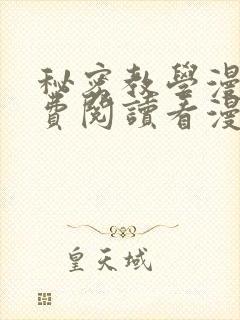 秘密教學漫
費閱讀看漫
皇天域